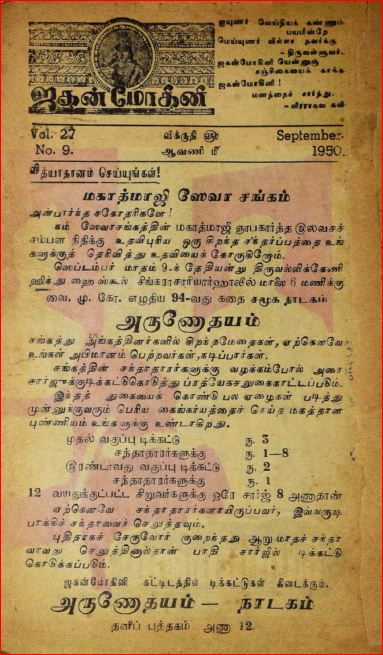 ஐயுணர் வெய்தியக் கண்ணும்
பயமின்றே
மெய்யுணர் வில்லா தவர்க்கு
-திருவள்ளுவர்.
ஜகன்மோகினி யென்னுஞ்
சஞ்சிகையைக் காக்க
ஜகன்மோகினி !
மனத்தைச் சார்ந்து.
-வீரராகவ கவி
ஜகன்மோகினி
Vol. 27 விக்ருதி ௵ September
No. 9. ஆவணி மீ 1950.
வித்யாதானம் செய்யுங்கள்!
மகாத்மாஜி ஸேவா சங்கம்
அன்பார்ந்த சகோதரிகளே !
நம் ஸேவாசங்கத்தின் மகாத்மாஜி ஞாபகார்த்த இலவசச்
சம்பள நிதிக்கு உதவிபுரிய ஒரு சிறந்த சந்தர்ப்பத்தை உங்
களுக்குத் தெரிவித்து உதவியைக் கோருகிறோம்.
ஸெப்டம்பர் மாதம் 9-ந் தேதியன்று திருவல்லிக்கேணி
ஹிந்து ஹைஸ்கூல் சிங்கராசாரியார்ஹாலில் மாலை 6 மணிக்கு
வை. மு. கோ. எழுதிய 94-வது கதை சமூக நாடகம்
அருணோதயம்
சங்கத்து அங்கத்தினர்களில் சிறந்தமேதைகள், ஏற்கெனவே
உங்கள் அபிமானம் பெற்றவர்கள், நடிப்பார்கள்.
சங்கத்தின் சந்தாதாரர்களுக்கு வழக்கம்போல் அரை
சார்ஜுக்குடிக்கட்டுகொடுத்து ப்ரத்யேகசலுகைகாட்டப்படும்.
இந்தத் துகையைக் கொண்டு பல ஏழைகள் படித்து
முன்னுக்குவரும் பெரிய கைங்கர்யத்தைச் செய்த மகத்தான
புண்ணியம் உங்களுக்கு உண்டாகிறது.
முதல் வகுப்பு டிக்கட்டு ரூ. 3
சந்தாதாரர்களுக்கு ரூ. 1-8
இரண்டாவது வகுப்பு டிக்கட்டு ரூ. 2
சந்தாதாரர்களுக்கு ரூ. 1
12 வயதுக்குட்பட்ட சிறுவர்களுக்கு ஒரே சார்ஜ் 8 அணாதான்
ஏற்கெனவே சந்தாதாரர்களாயிருப்பவர், இவ்வருஷ
பாக்கிச் சந்தாவைச் செலுத்தவும்.
புதிதாகச் சேருவோர் குறைந்தது ஆறுமாதச் சந்தா
வாவது செலுத்தினால்தான் பாதி சார்ஜில் டிக்கட்டு
கொடுக்கப்படும்.
ஜகன்மோகினி கட்டிடத்தில் டிக்கட்டுகள் கிடைக்கும்.
அருணோதயம் — நாடகம்
தனிப் புத்தகம் அணா 12.